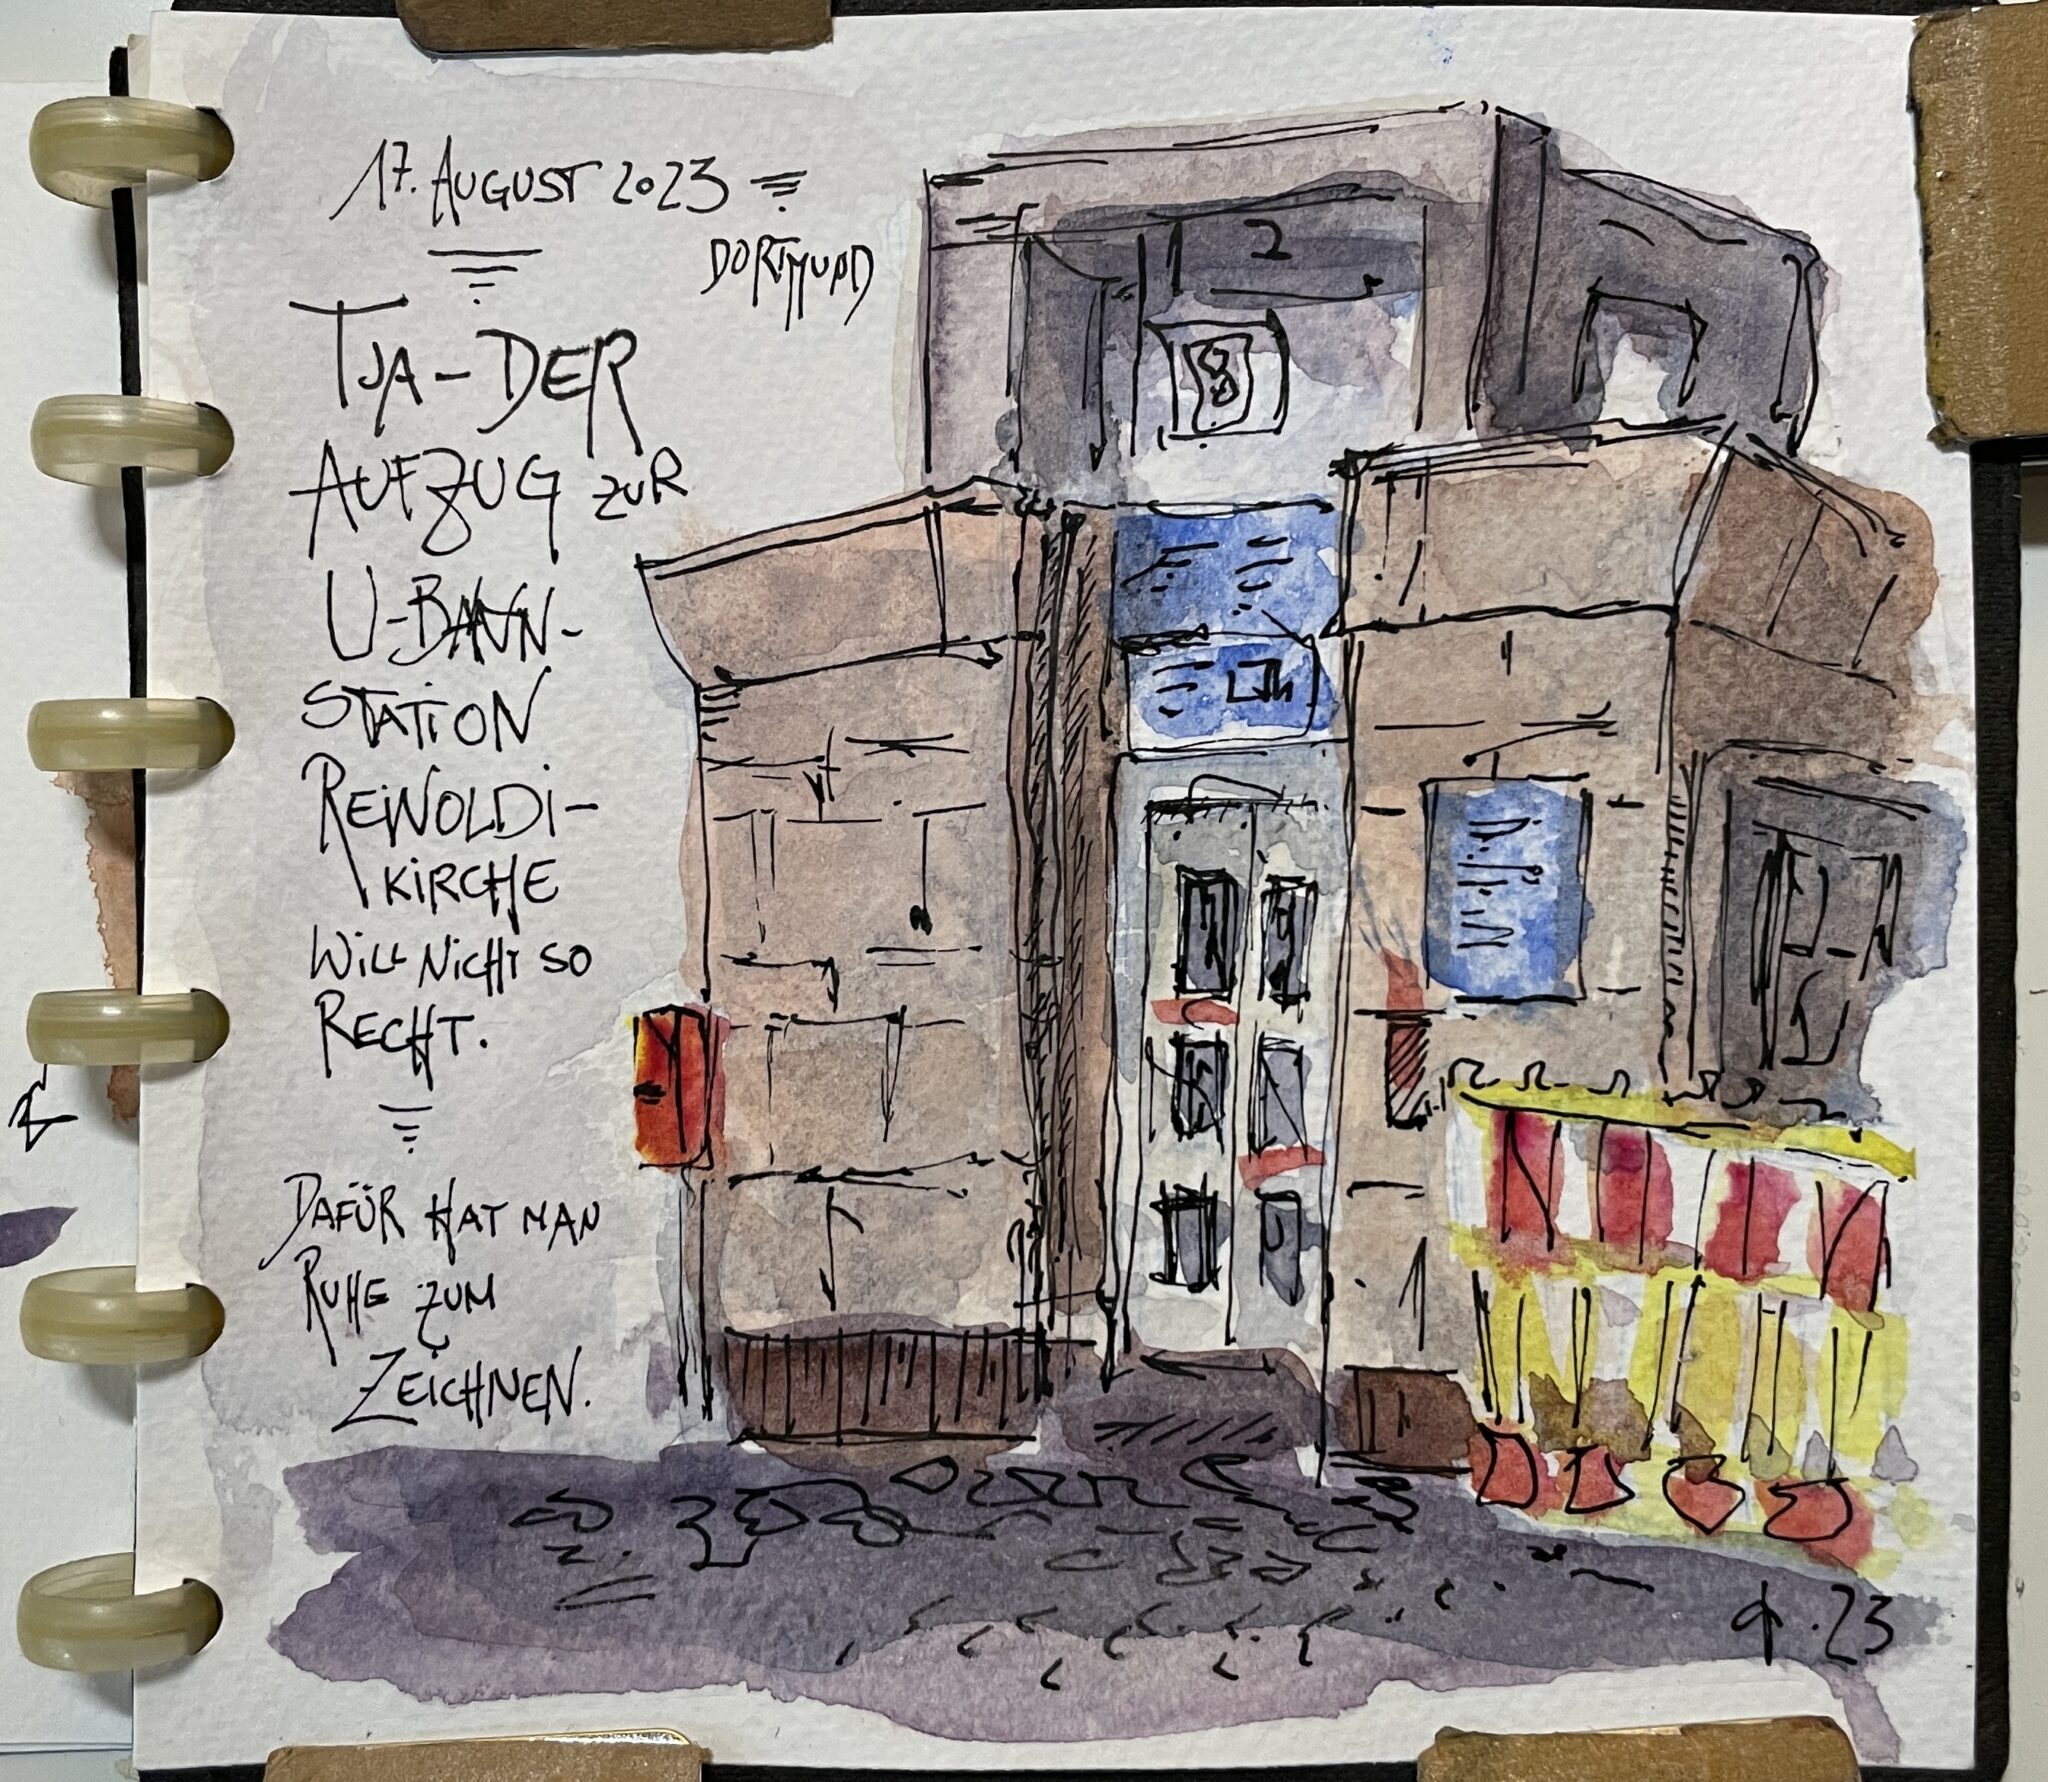 17. AUGUST 2023
DORTMUND
TJA - DER
AUFZUG ZUR
U-BAHN-
STATION
REINOLDI-
KIRCHE
WILL NICHT SO
RECHT.
DAFÜR HAT MAN
RUHE ZUM
ZEICHNEN.
2
8
23